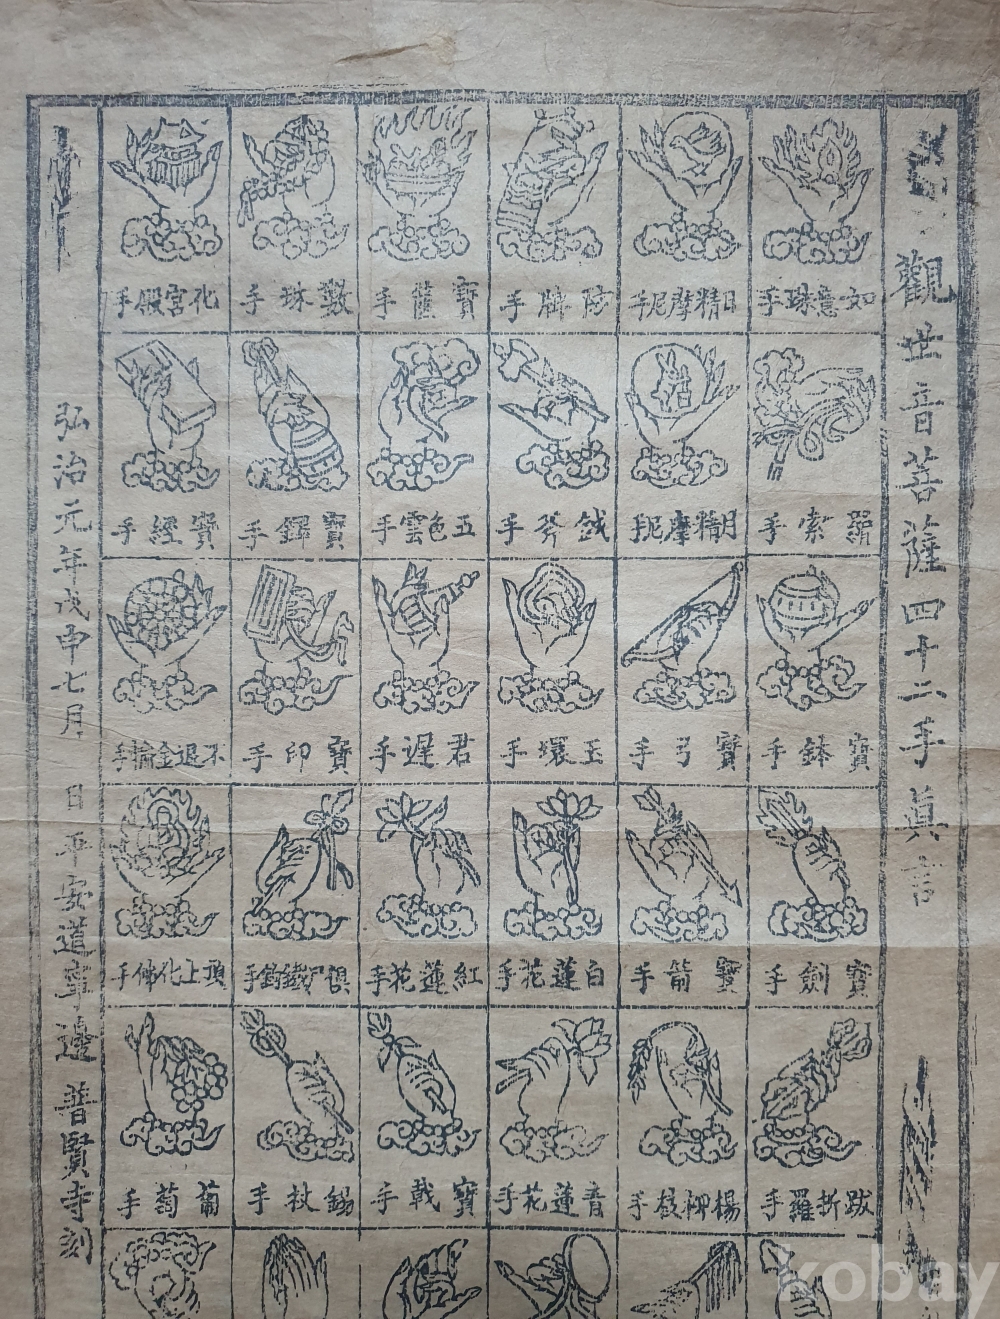 觀世音菩薩四十二手眞言
如意珠手
日精摩尼手
防牌手
寶籃手
數珠手
化宮殿手
羂索手
月精摩尼手
鉞斧手
五色雲手
寶鐸手
寶經手
寶鉢手
寶弓手
玉環手
君遲手
寶印手
不退金輪手
寶劍手
寶箭手
白蓮花手
紅蓮花手
俱尸鐵鉤手
頂上化佛手
跋折羅手
楊柳枝手
青蓮花手
寶戟手
錫杖手
葡萄手
弘治元年戊申七月 日平安道寧邊 普賢寺刻
kobay